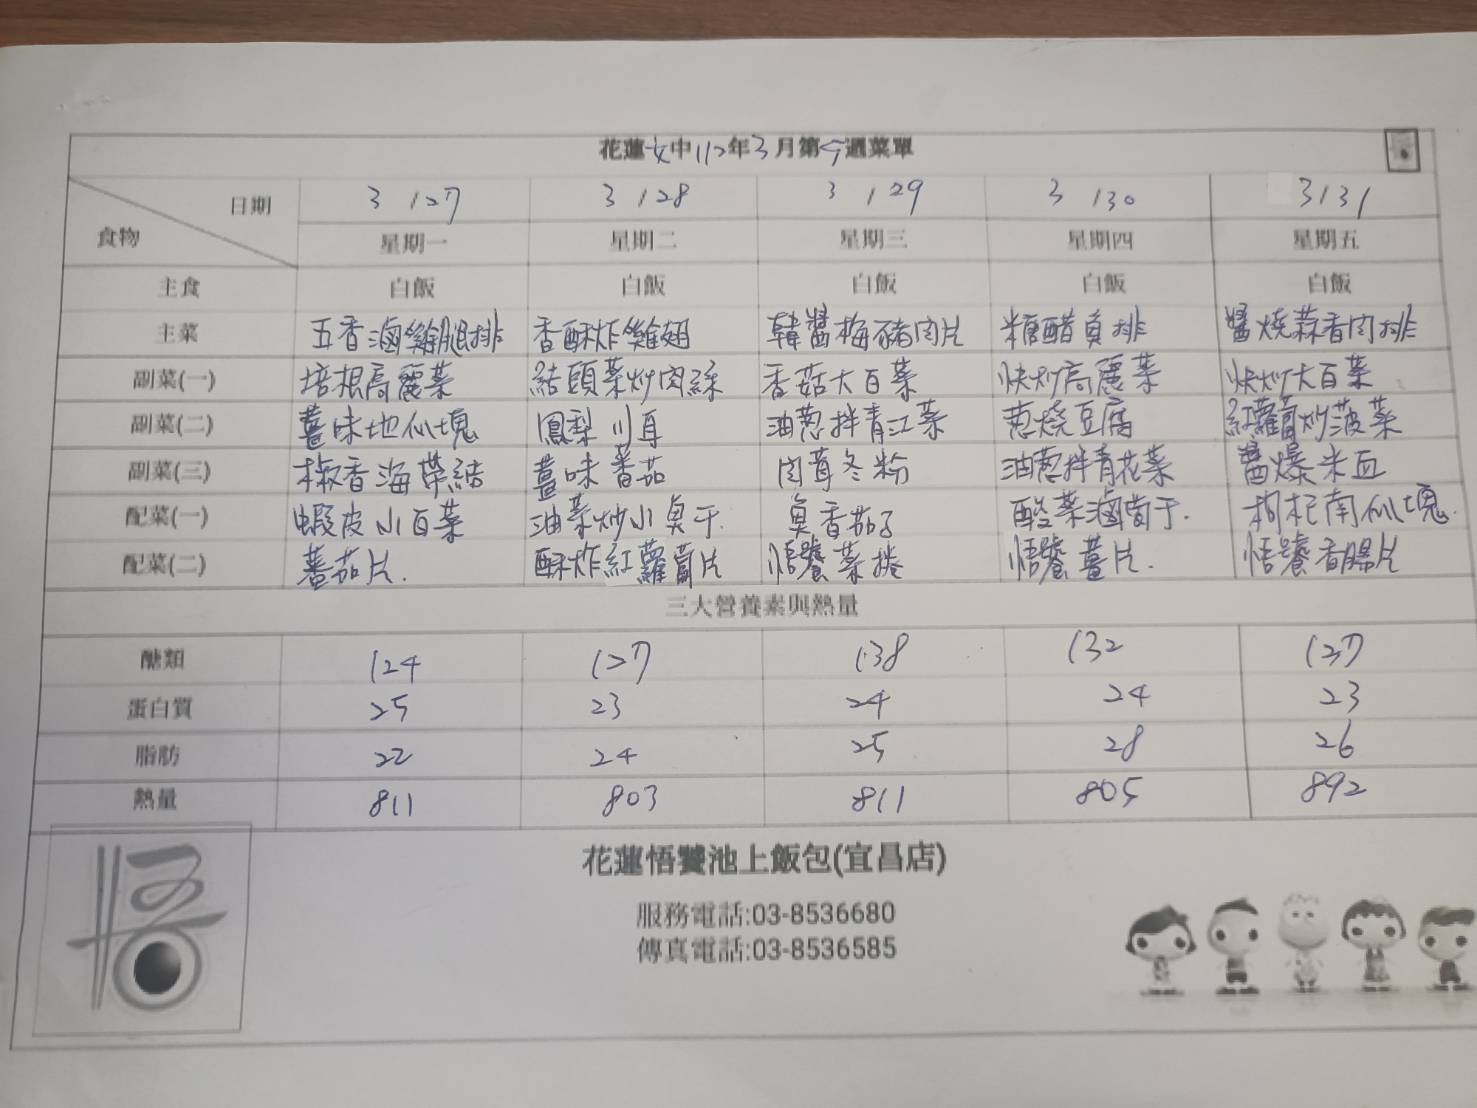 花蓮女中112年3月第5週菜單
日期 3/27 3/28 3/29 3/30 3/31
食物 星期一 星期二 星期三 星期四 星期五
主食 白飯 白飯 白飯 白飯 白飯
主菜 五香滷雞腿排 香酥炸雞翅 韓醬梅豬肉片 糖醋魚排 醬燒蒜香肉排
副菜(一) 培根高麗菜 結頭菜炒肉絲 香菇大白菜 快炒高麗菜 快炒大白菜
副菜(二) 薑味地瓜塊 鳳梨川耳 油蔥拌青江菜 蔥燒豆腐 紅蘿蔔炒菠菜
副菜(三) 椒香海帶結 薑味番茄 肉茸冬粉 油蔥拌青花菜 醬爆米血
配菜(一) 蝦皮小白菜 油菜炒小魚干 魚香茄子 酸菜滷筍干. 枸杞南瓜塊.
配菜(二) 蕃茄片. 酥炸紅蘿蔔片 悟饕菜捲 悟饕薑片. 悟饕香腸片
三大營養素與熱量
醣類 124 127 138 132 137
蛋白質 25 23 24 24 23
脂肪 22 24 25 28 26
熱量 811 803 811 805 892
悟
花蓮悟饕池上飯包(宜昌店)
服務電話:03-8536680
傳真電話:03-8536585